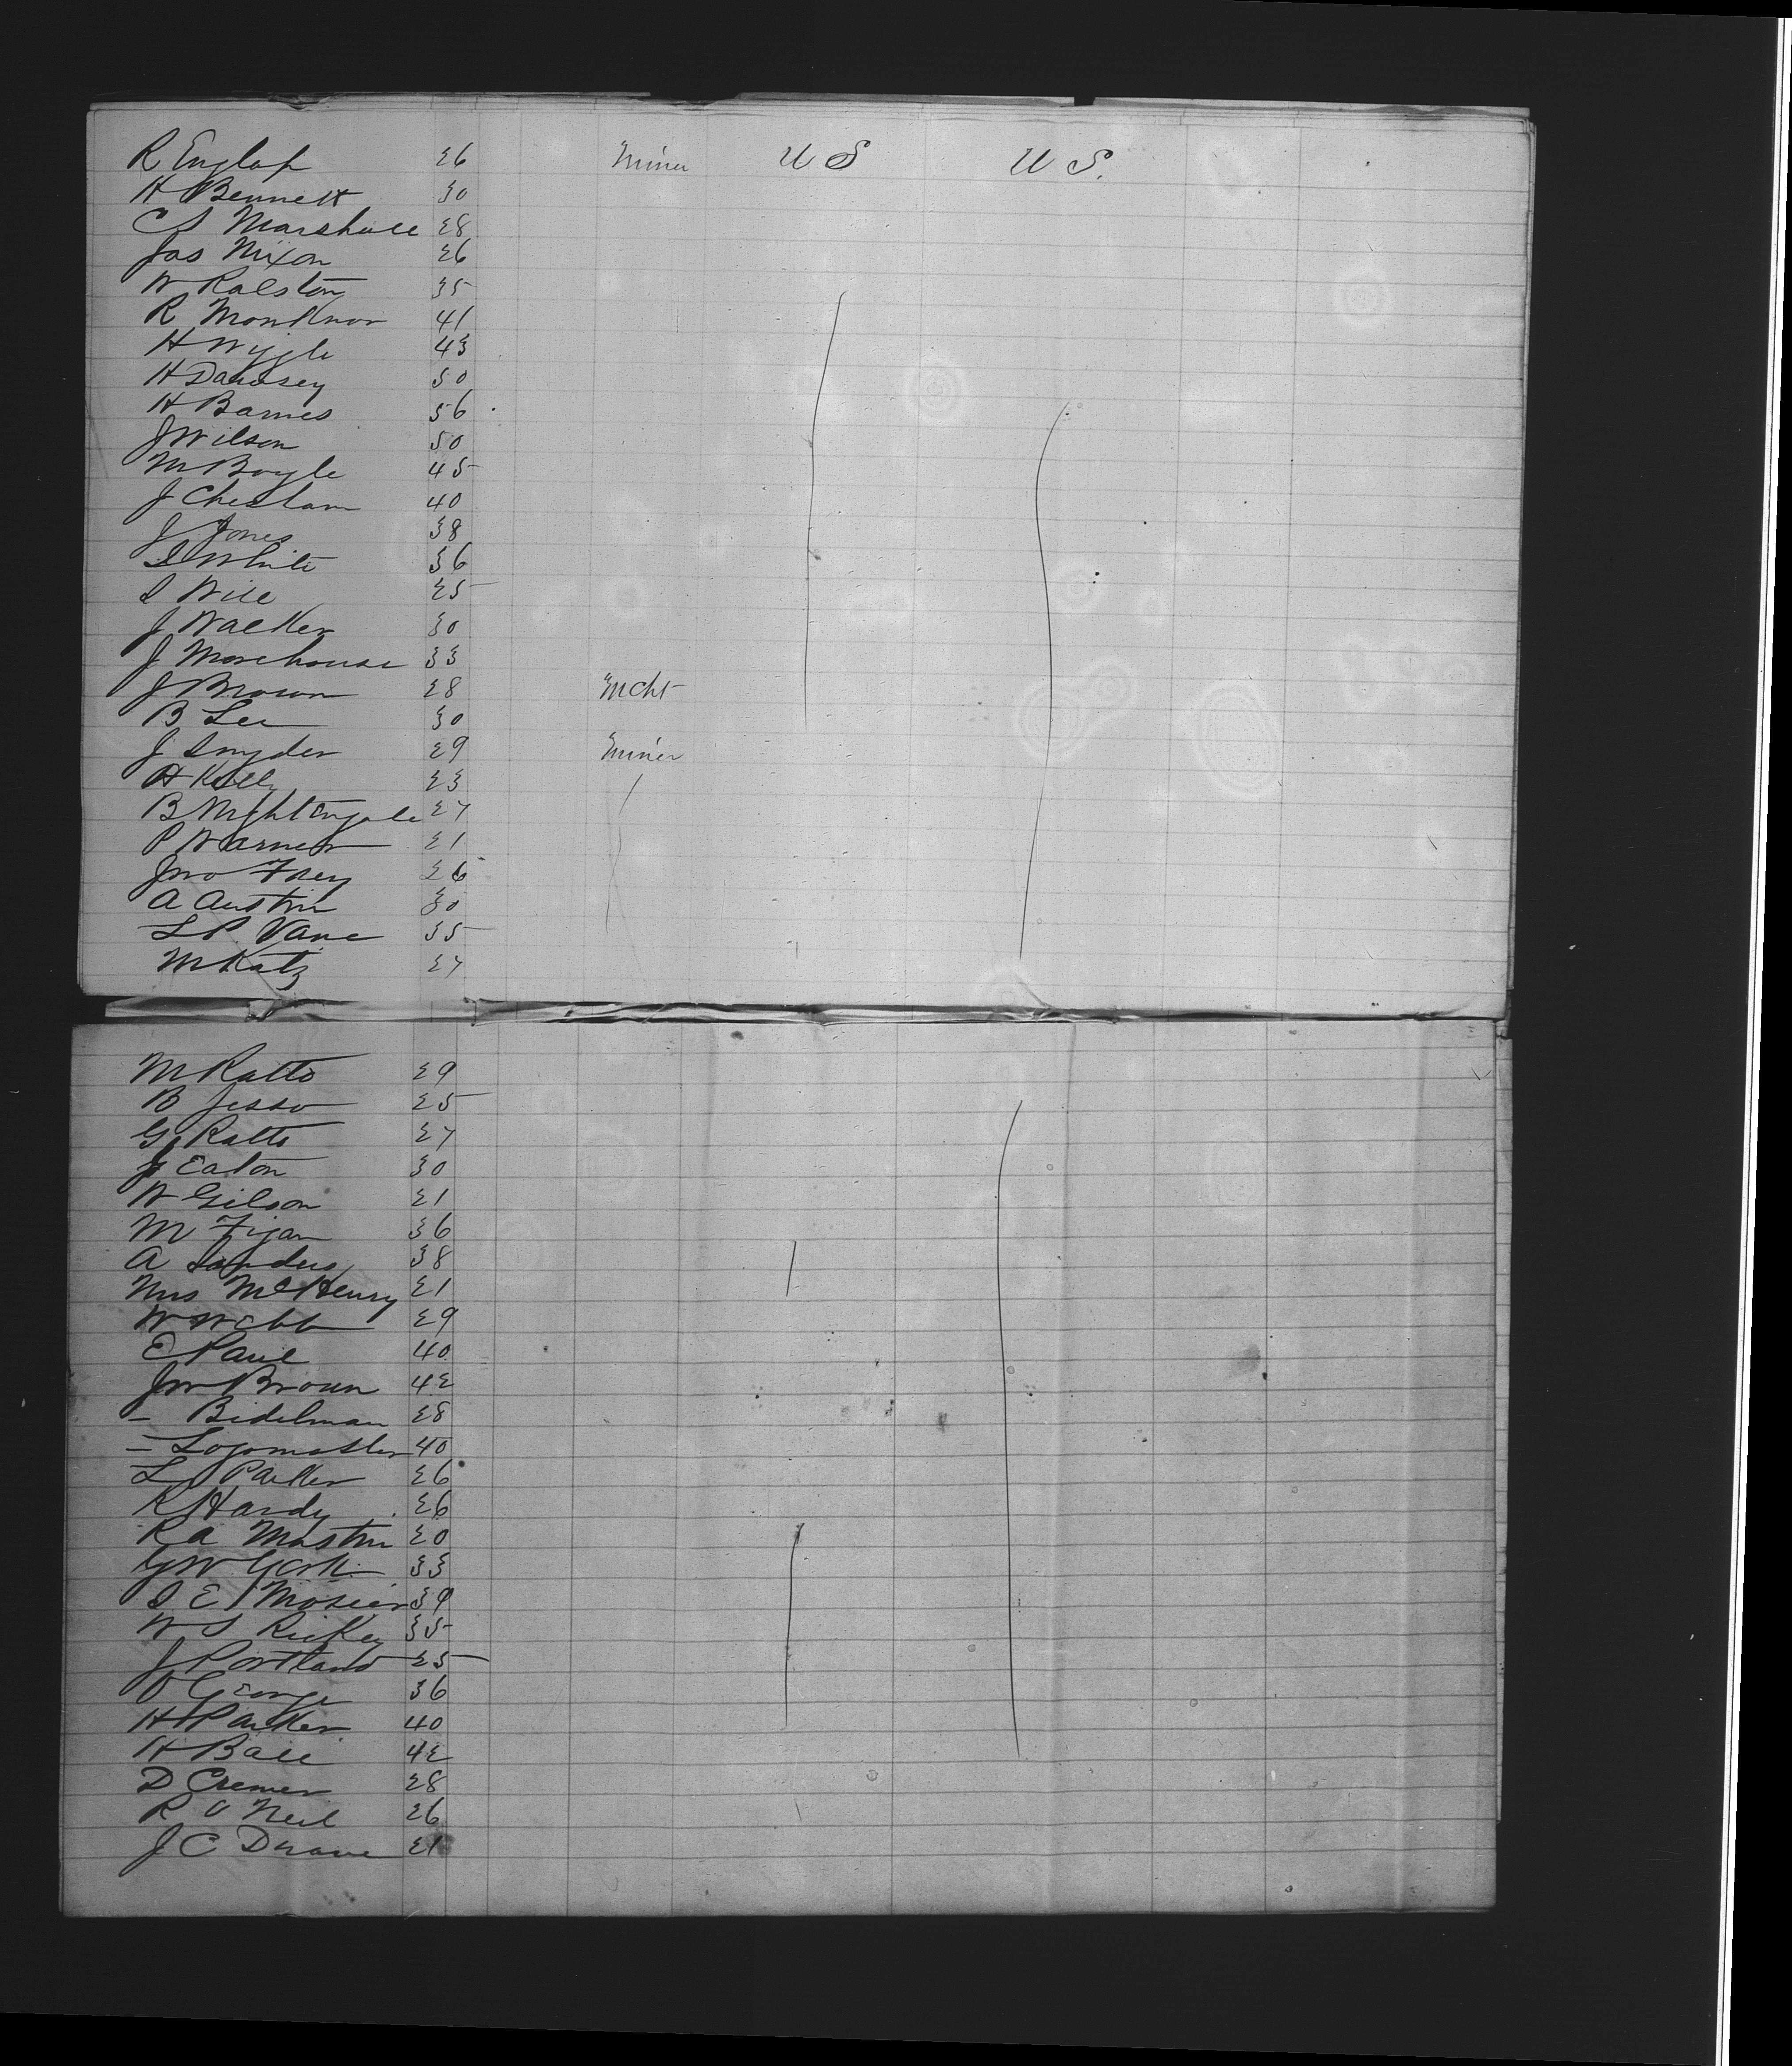 R Englof 26 Miner U S U S.
H Bennett 30
C S Marshall 28
Jas Nixon 26
W Ralston 35
R 41
H Wiggle 43
H Dempsey 50
H Barnes 56
J Wilson 50
M Boyle 45
J Chesham 40
J Jones 38
S White 36
S Will 25
J Walker 30
J Morehouse 33
J Brown 28 Mcht
B Lee 30
J Snyder 29 Miner
H Kelly 23
B Nightingale 27
P Warner 21
Jno Frey 26
A Austin 30
L P Vane 35
M Katz 27
M Ratto 29
B Jesso 25
G Ratto 27
J Eaton 30
W Gilson 21
M Figan 36
A Sanders 38
Mrs McHenry 21
W Webb 29
E Paul 40
Jno Brown 42
— Bidelman 28
— 40
L Parker 26
R Hardy 26
R A Mastin 20
G W York 33
S E Mosier 39
W S Rickey 35
J Portland 25
O George 36
H Parker 40
H Ball 42
D Cremer 28
R O Neil 26
J C Duane 21